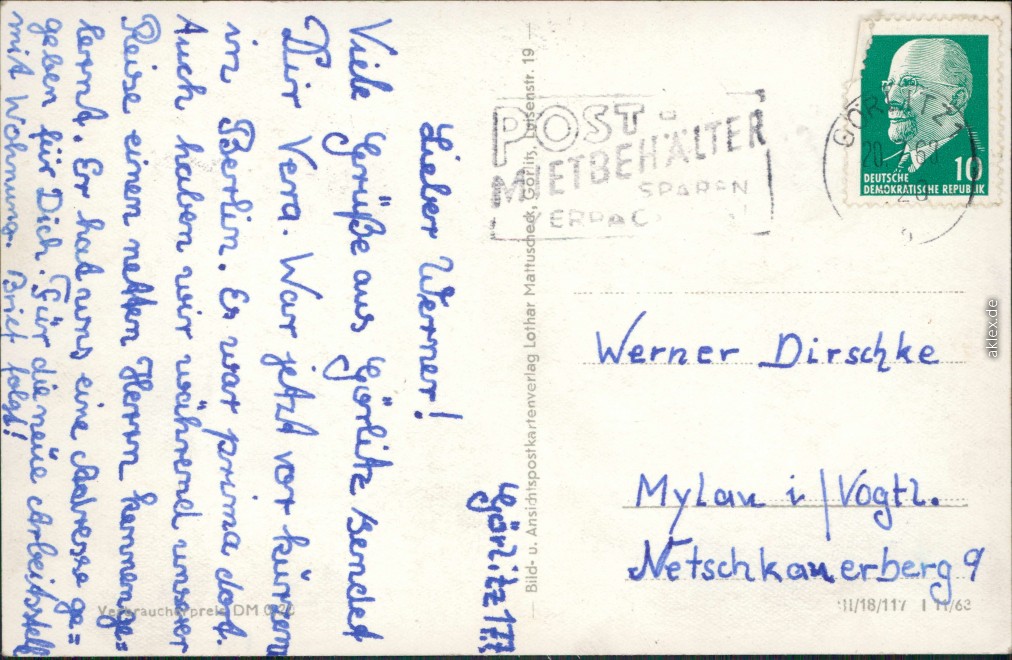 Görlitz 17.
Lieber Werner!
Viele Grüße aus Görlitz sendet
Dir Verra. War jetzt vor kurzem
in Berlin. Es war prima dort.
Auch haben wir während unserer
Reise einen netten Herrn kennenge=
lernt. Er hat uns eine Adresse ge=
geben für Dich. Für die neue Arbeitsstell
mit Wohnung. Brief folgt!
Verbraucherpreis DM 0,20
Bild- u. Ansichtspostkartenverlag Lothar Mattuscheck, Görlitz, Luisenstr. 19
POST
MIETBEHÄLTER
SPAREN
VERPAC
GÖRLITZ 1
DEUTSCHE 10
DEMOKRATISCHE REPUBLIK
Werner Dirschke
Mylau i/Vogtl.
Netschkauerberg 9
III/18/117 I 11/63
aklex.de